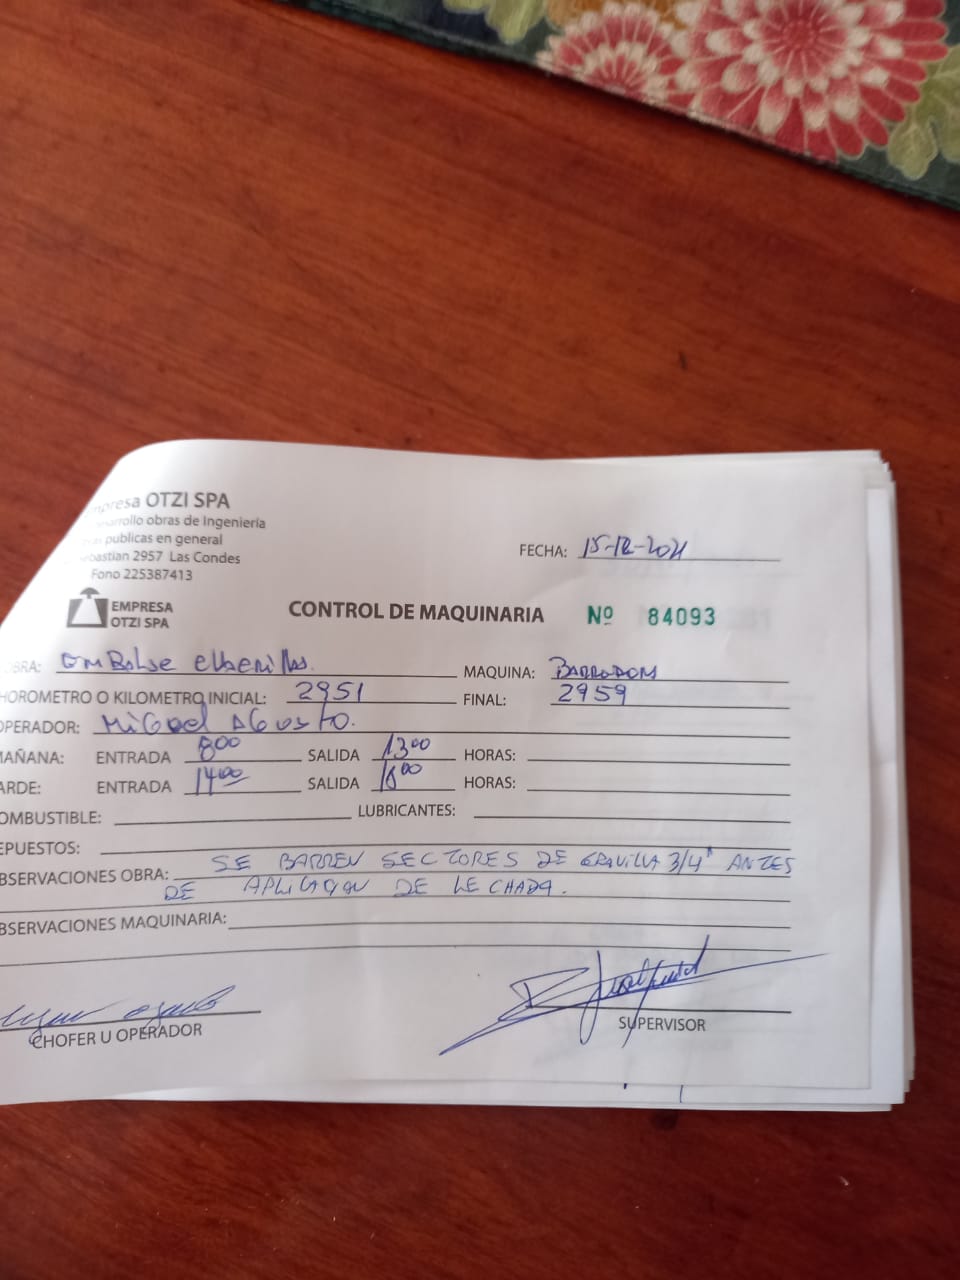 mpresa OTZI SPA
sarrollo obras de Ingenieria
publicas en general
ebastian 2957 Las Condes
Fono 225387413
FECHA: 15-12-2021
EMPRESA
OTZI SPA
CONTROL DE MAQUINARIA Nº 84093
BRA: EMBalse MAQUINA: BARREDORA
HOROMETRO O KILOMETRO INICIAL: 2951 FINAL: 2959
OPERADOR: MiGuel AGusto.
MAÑANA: ENTRADA 800 SALIDA 1300 HORAS:
ARDE: ENTRADA 1400 SALIDA 1800 HORAS:
OMBUSTIBLE: LUBRICANTES:
EPUESTOS:
BSERVACIONES OBRA: SE BARREN SECTORES DE GRAVILLA 3/4" ANTES
DE APLICACION DE LECHADA.
BSERVACIONES MAQUINARIA:
CHOFER U OPERADOR
SUPERVISOR